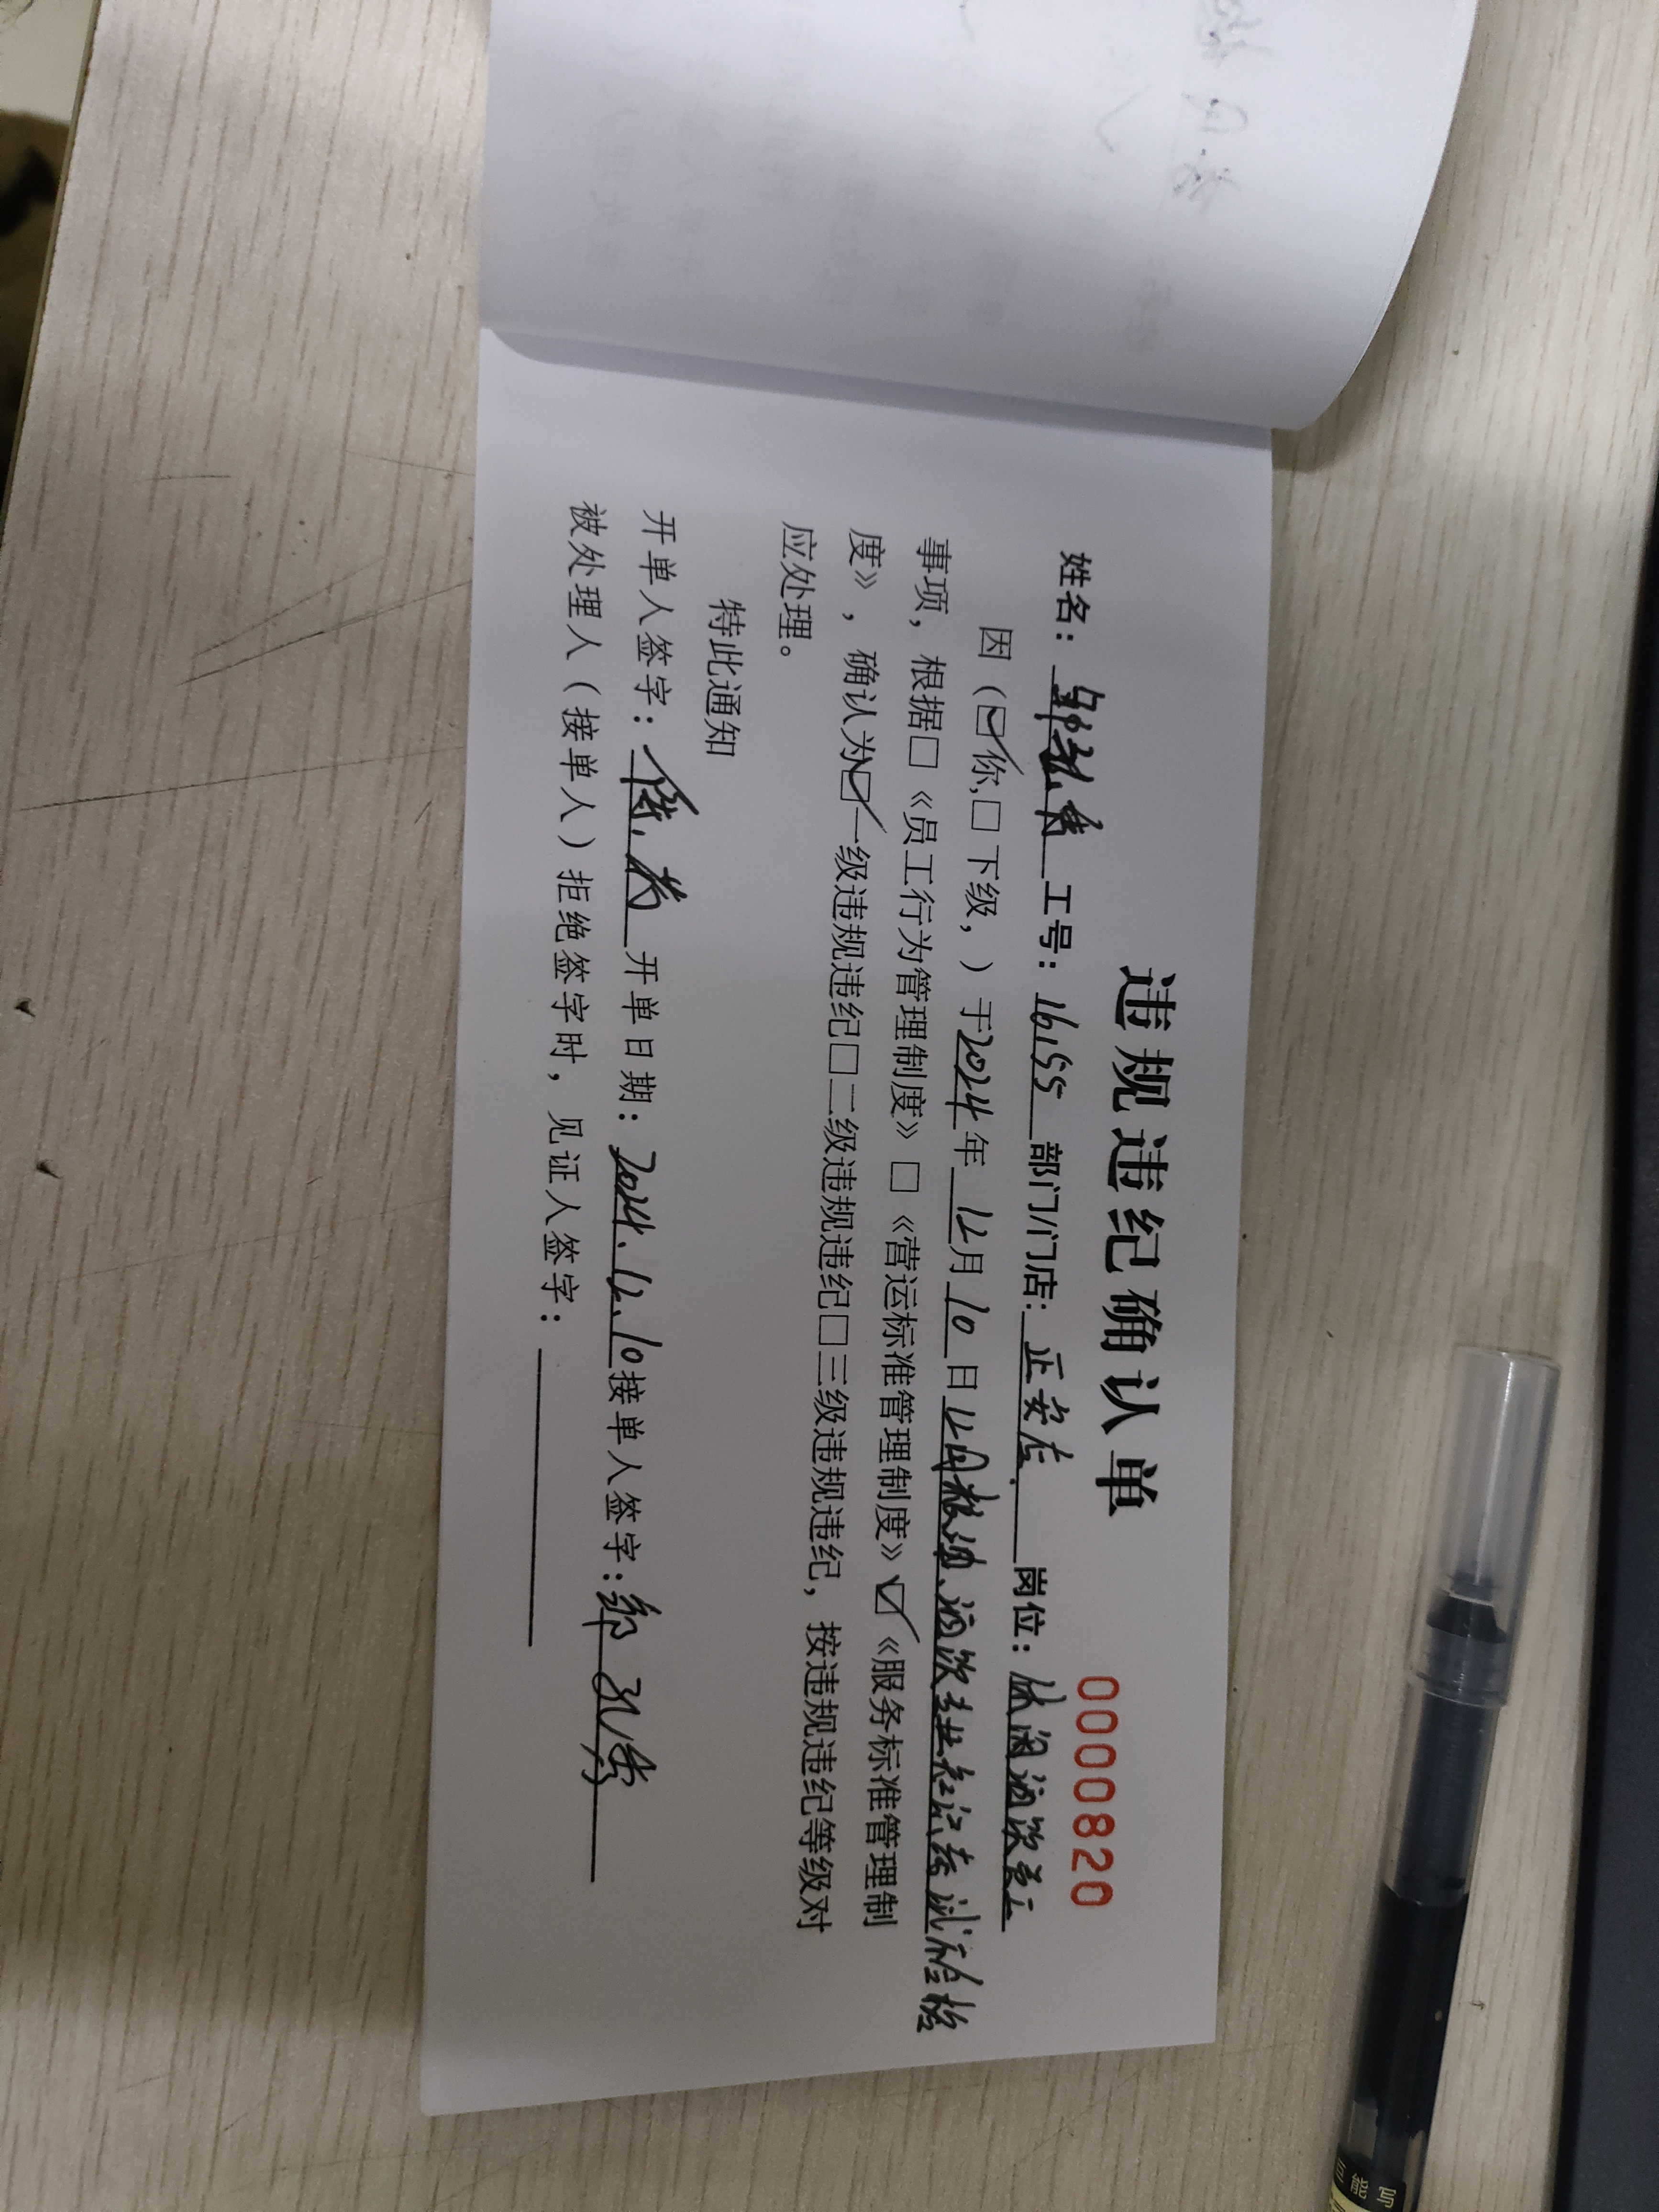 违规违纪确认单
0000820
姓名: 工号: 16155 部门/门店: 正安店 岗位: 休闲酒饮员工
因（☑你,□下级，）于2024年12月10日12月粮油、酒饮专业知识考试不合格
事项，根据□《员工行为管理制度》□《营运标准管理制度》☑《服务标准管理制
度》，确认为☑一级违规违纪□二级违规违纪□三级违规违纪，按违规违纪等级对
应处理。
特此通知
开单人签字: 开单日期: 2024.12.10 接单人签字:
被处理人（接单人）拒绝签字时，见证人签字:
能写